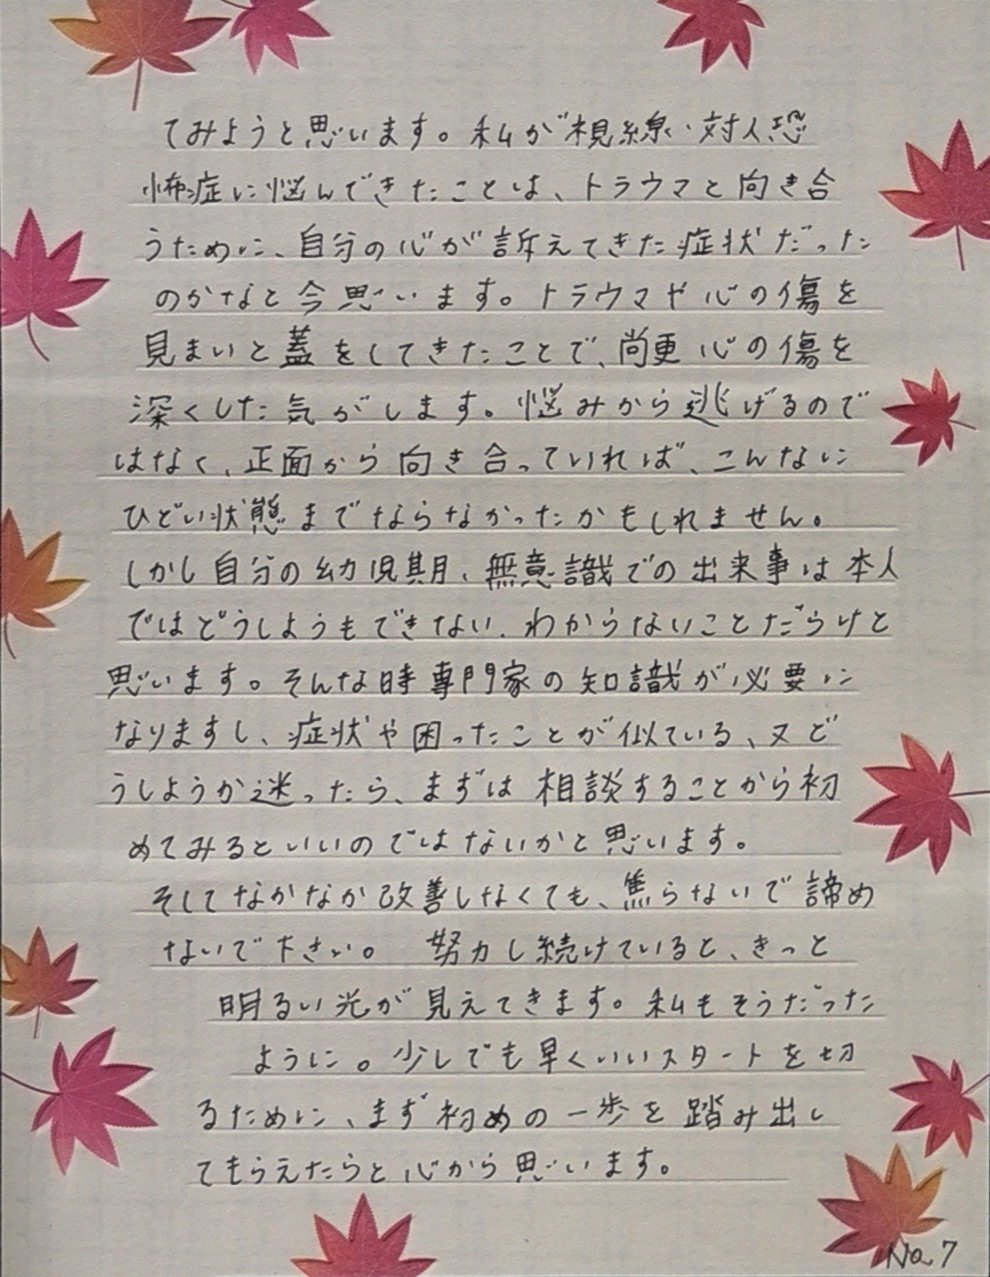 てみようと思います。私が視線・対人恐
怖症に悩んできたことは、トラウマと向き合
うために、自分の心が訴えてきた症状だった
のかなと今思います。トラウマや心の傷を
見まいと蓋をしてきたことで、尚更心の傷を
深くした気がします。悩みから逃げるので
はなく、正面から向き合っていれば、こんなに
ひどい状態までならなかったかもしれません。
しかし自分の幼児期、無意識での出来事は本人
ではどうしようもできない、わからないことだらけと
思います。そんな時専門家の知識が必要に
なりますし、症状や困ったことが似ている、又ど
うしようか迷ったら、まずは相談することから初
めてみるといいのではないかと思います。
そしてなかなか改善しなくても、焦らないで諦め
ないで下さい。 努力し続けていると、きっと
明るい光が見えてきます。私もそうだった
ように。少しでも早くいいスタートを切
るために、まず初めの一歩を踏み出し
てもらえたらと心から思います。
No.7